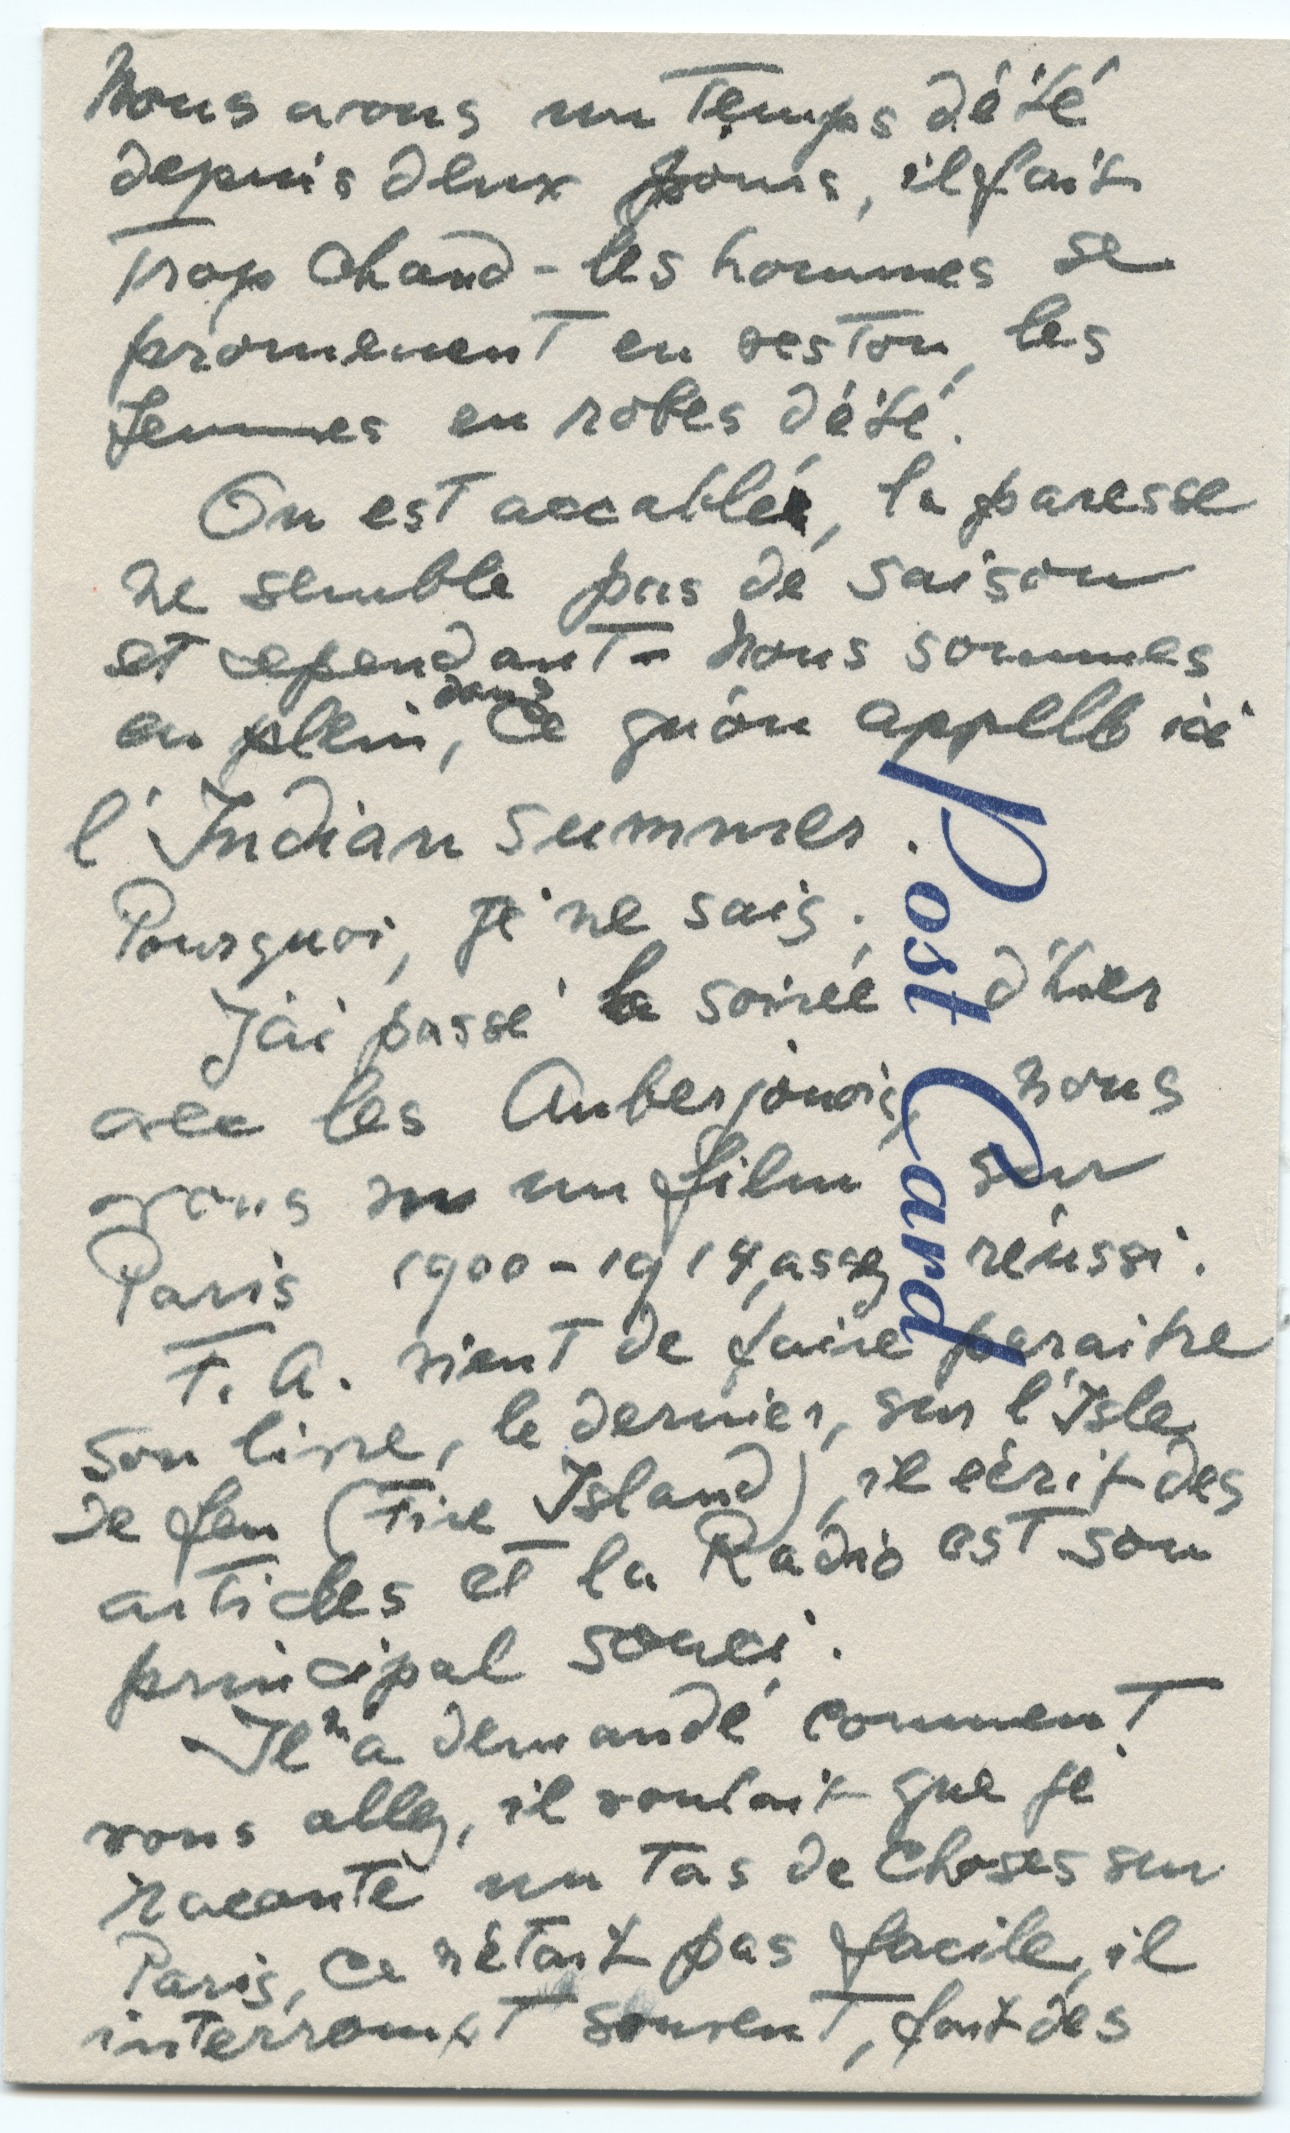 Nous avons un Temps d'été
depuis deux jours, il fait
Trop chaud - les hommes se
promenent en veston, les
femmes en robes d'été.
On est accablé, la paresse
ne semble pas de saison
et cependant - Nous sommes
en plein, dans ce qu'on appelle ici
l'Indian summer.
Pourquoi, je ne sais.
J'ai passé la soirée d'hier
avec les Auberjonois, nous
avons vu un film sur
Paris 1900-1914, assez réussi.
F. A. vient de faire paraitre
son livre, le dernier, sur l'Isle
de feu (Fire Island), il écrit des
articles et la Radio est son
principal souci.
Il m'a demandé comment
vous allez, il voulait que je
raconte un tas de choses sur
Paris, ce n'était pas facile, il
interrompt souvent, fait des
Post Card